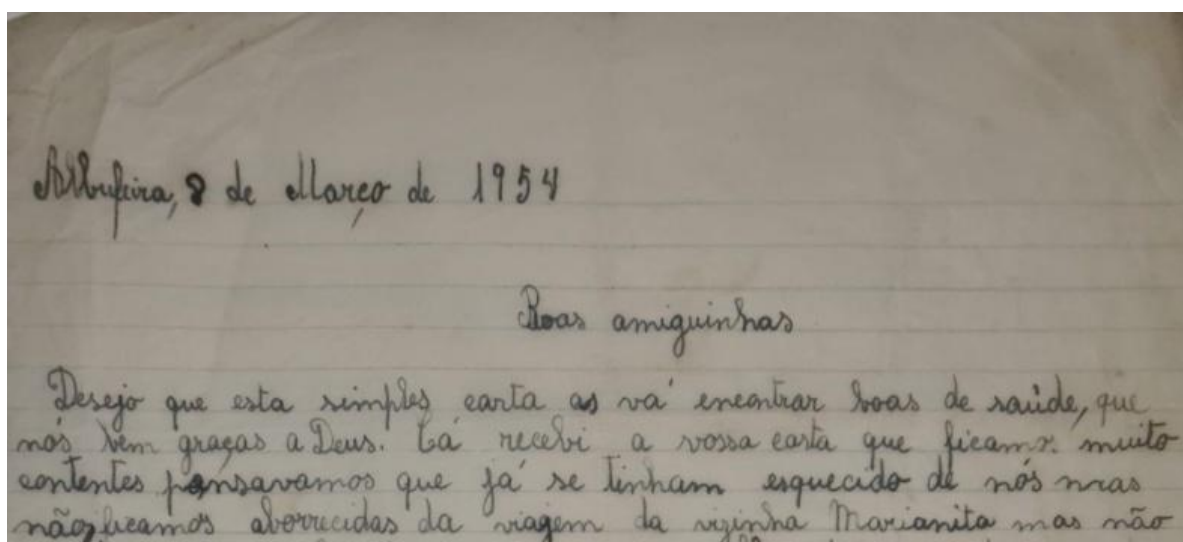 Albufeira, 8 de Março de 1954
Boas amiguinhas
Desejo que esta simples carta as vá encontrar boas de saúde, que
nós bem graças a Deus. Cá recebi a vossa carta que ficamos muito
contentes pensavamos que já se tinham esquecido de nós mas
não, ficamos aborrecidas da viagem da vizinha Marianita mas não